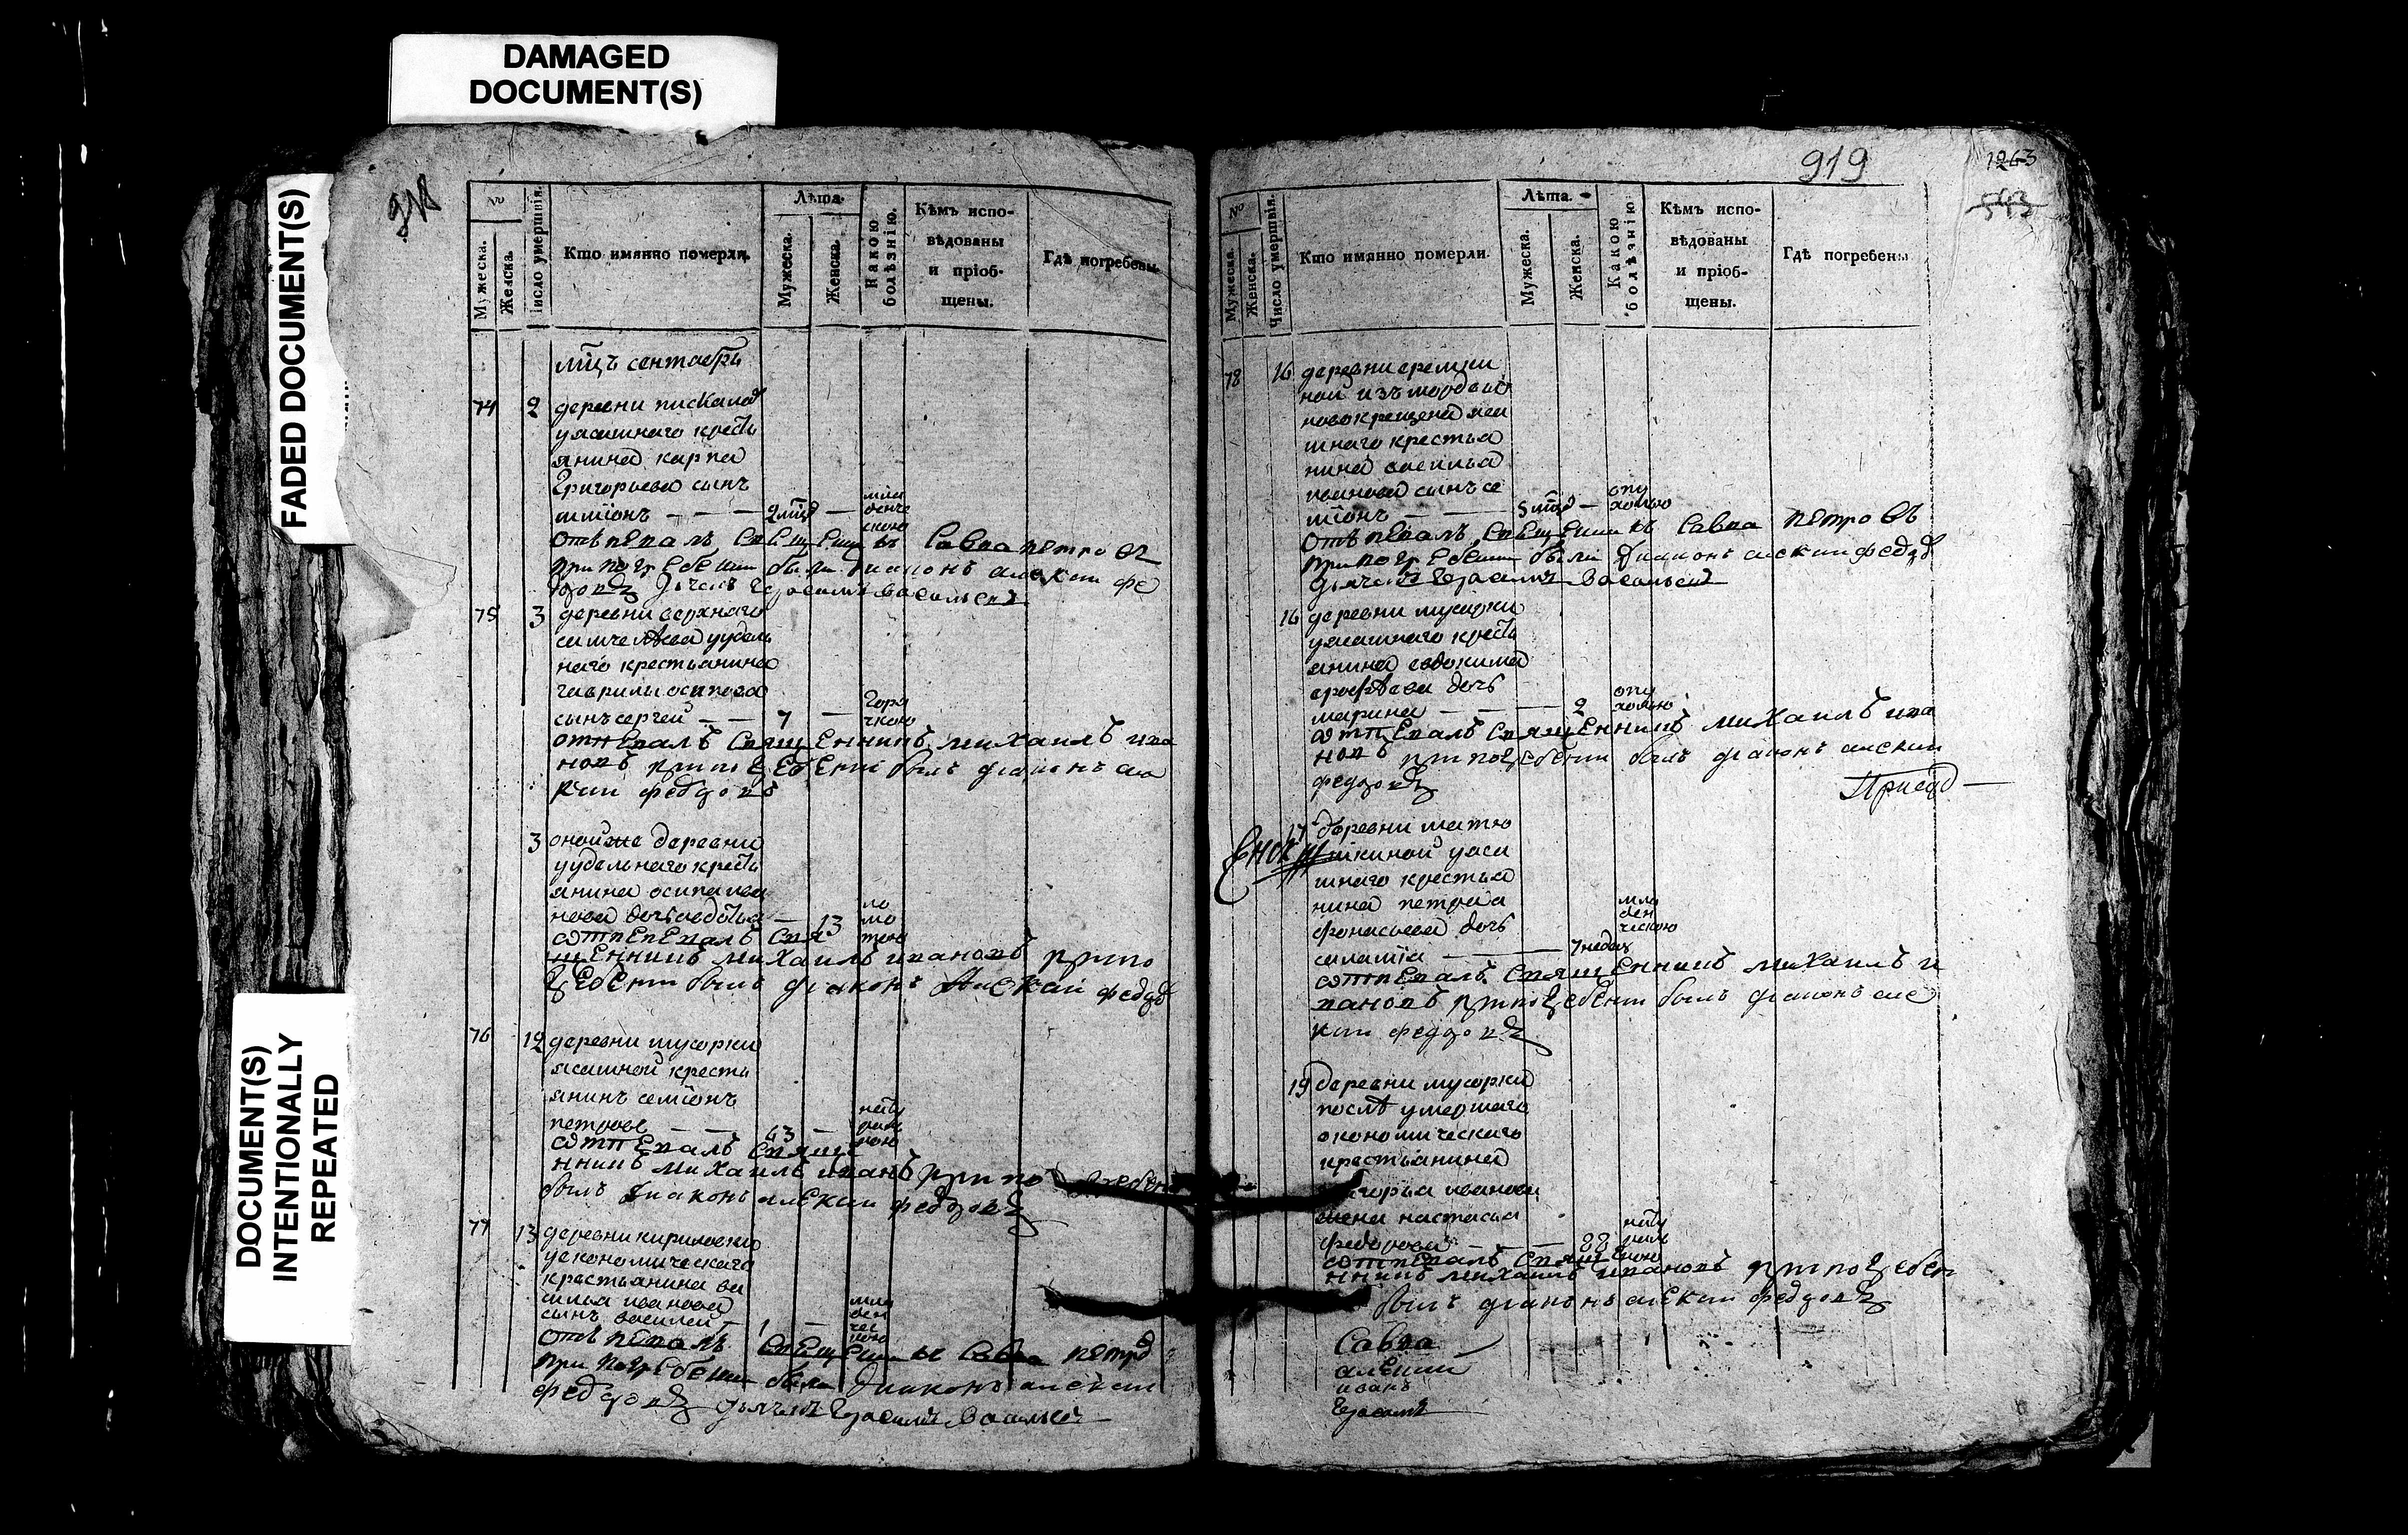 DAMAGED
DOCUMENT(S)
FADED DOCUMENT(S)
DOCUMENT(S)
INTENTIONALLY
REPEATED
№
Мужеска.
Женска.
Число умершвія.
Кто имянно померли.
Лѣта.
Мужеска.
Женска.
Какою
болѣзнію.
Кѣмъ испо-
вѣдованы
и пріоб-
щены.
Гдѣ погребены
мцъ сентябрь
74 2 деревни пискалов
уясашнаго кресть
янина карпа
Григорьева сынъ
симионъ — — — 2 мцд — младенческою
отпѣвалъ священникъ Савва петровъ
при погребении были диаконъ алексей фе
доровъ дьячекъ Герасимъ васильевъ
75 3 деревни верхнаго
санчелѣева уудель
наго крестьянина
гаврилы осипова
сынъ сергей — — 7 — горячкою
отпевалъ священникъ михаилъ ива
новъ при погребении былъ диаконъ але
ксий федоровъ
3 оной же деревни
уудельнаго кресть
янина осипа ива
нова дочь авдотья — 13 ломотою
отпевалъ свя
щенникъ михаилъ ивановъ при по
гребении былъ диаконъ Алексий федоръ
76 12 деревни мусорки
ясашной кресть
янинъ семионъ
петровъ — — 63 — натуральною
отпевалъ свяще
нникъ михаилъ иванъ при по гребени
былъ диаконъ алексий федоровъ
77 13 деревни кириловки
уекономическаго
крестьянина ва
силья иванова
сынъ василей — 1 — младенческою
отпѣвалъ священникъ Савва петро
при погребении были диаконъ алексей
федоровъ дьячекъ Герасимъ Васильевъ
919
1263
543
№
Мужеска.
Женска.
Число умершвія.
Кто имянно померли.
Лѣта.
Мужеска.
Женска.
Какою
болѣзнію
Кѣмъ испо-
вѣдованы
и пріоб-
щены.
Гдѣ погребены
78 16 деревни еремки
ной изъ мордвы
новокрещена яса
шнаго крестья
нина василья
иванова сынъ се
мионъ — — 5 мцд — опухолью
отпѣвалъ священникъ Савва петровъ
при погребении были диаконъ алексий федоръ
дьячекъ Герасимъ Васильевъ
16 деревни мусорки
уясашнаго кресть
янина евдокима
ерофѣева дочь
марина — — — 2 опухолью
отпевалъ священникъ михаилъ ива
новъ при погребении былъ диаконъ алексий
федоровъ
17 деревни матю
шкиной уяса
шнаго крестья
нина петра а
фонасьева дочь
— — 7 недел младенческою
отпевалъ священникъ михаилъ и
вановъ при погребении былъ диаконъ але
ксий федоровъ
19 деревни мусорки
послѣ умершаго
економическаго
крестьянина
григорья иванова
жена настасья
федорова — — 88 натуральною
отпевалъ свяще
нникъ михаилъ ивановъ при погребен
былъ диаконъ алексий федоровъ
Савва
алексий
иванъ
Герасимъ